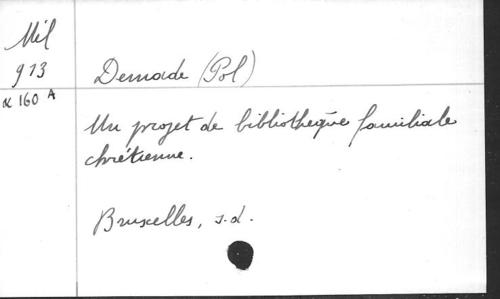 Mil
913
α 160 A
Demade (Pol)
Un projet de bibliothèque familiale
chrétienne.
Bruxelles, s.d.